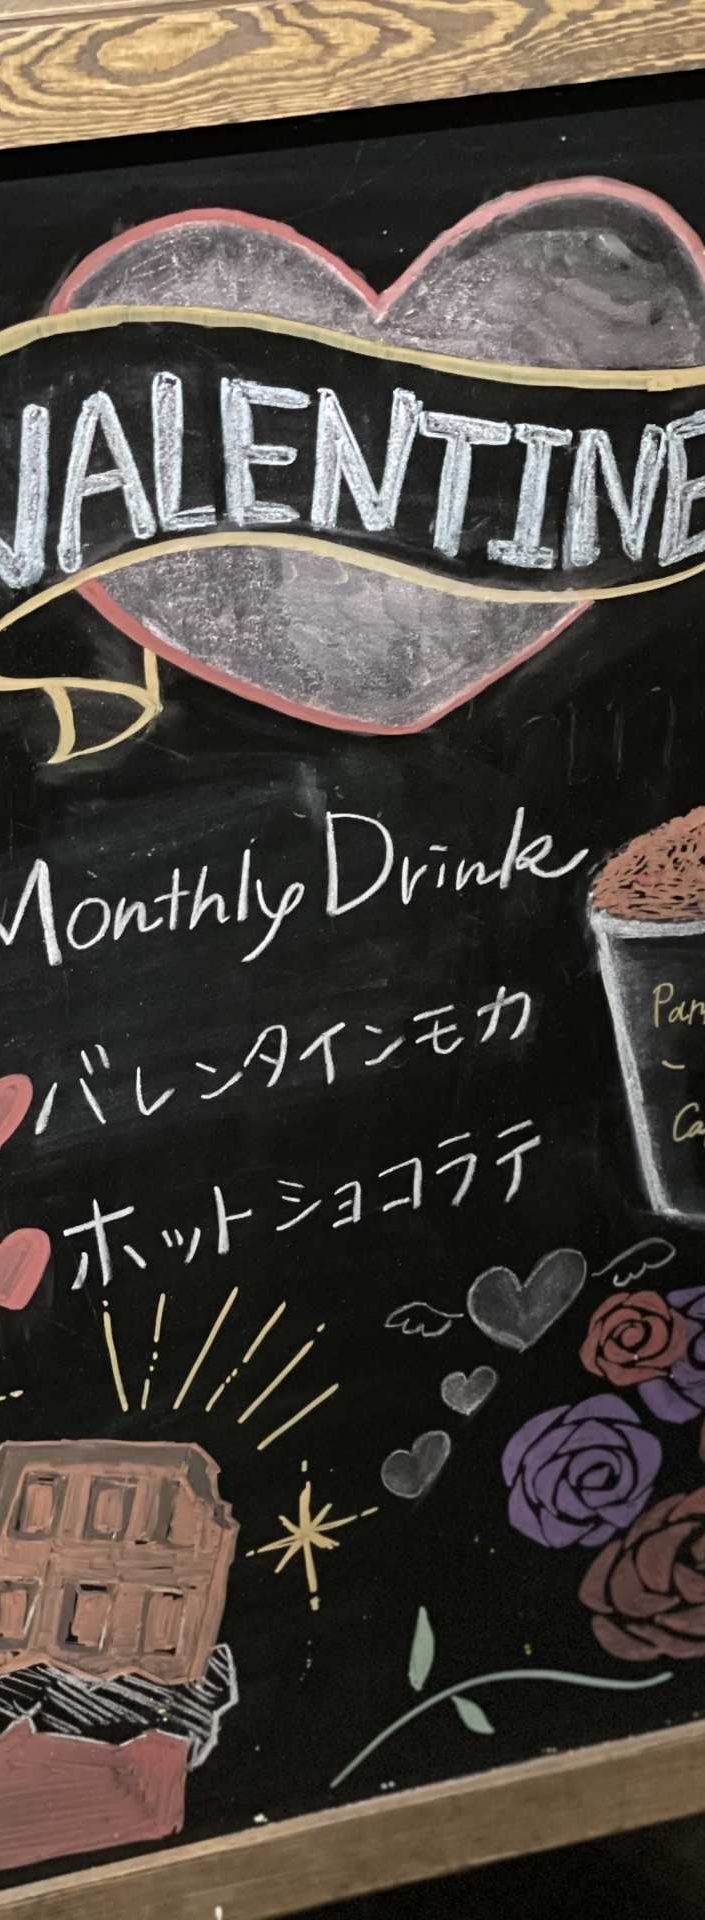 VALENTINE
Monthly Drink
バレンタインモカ
ホットショコラテ